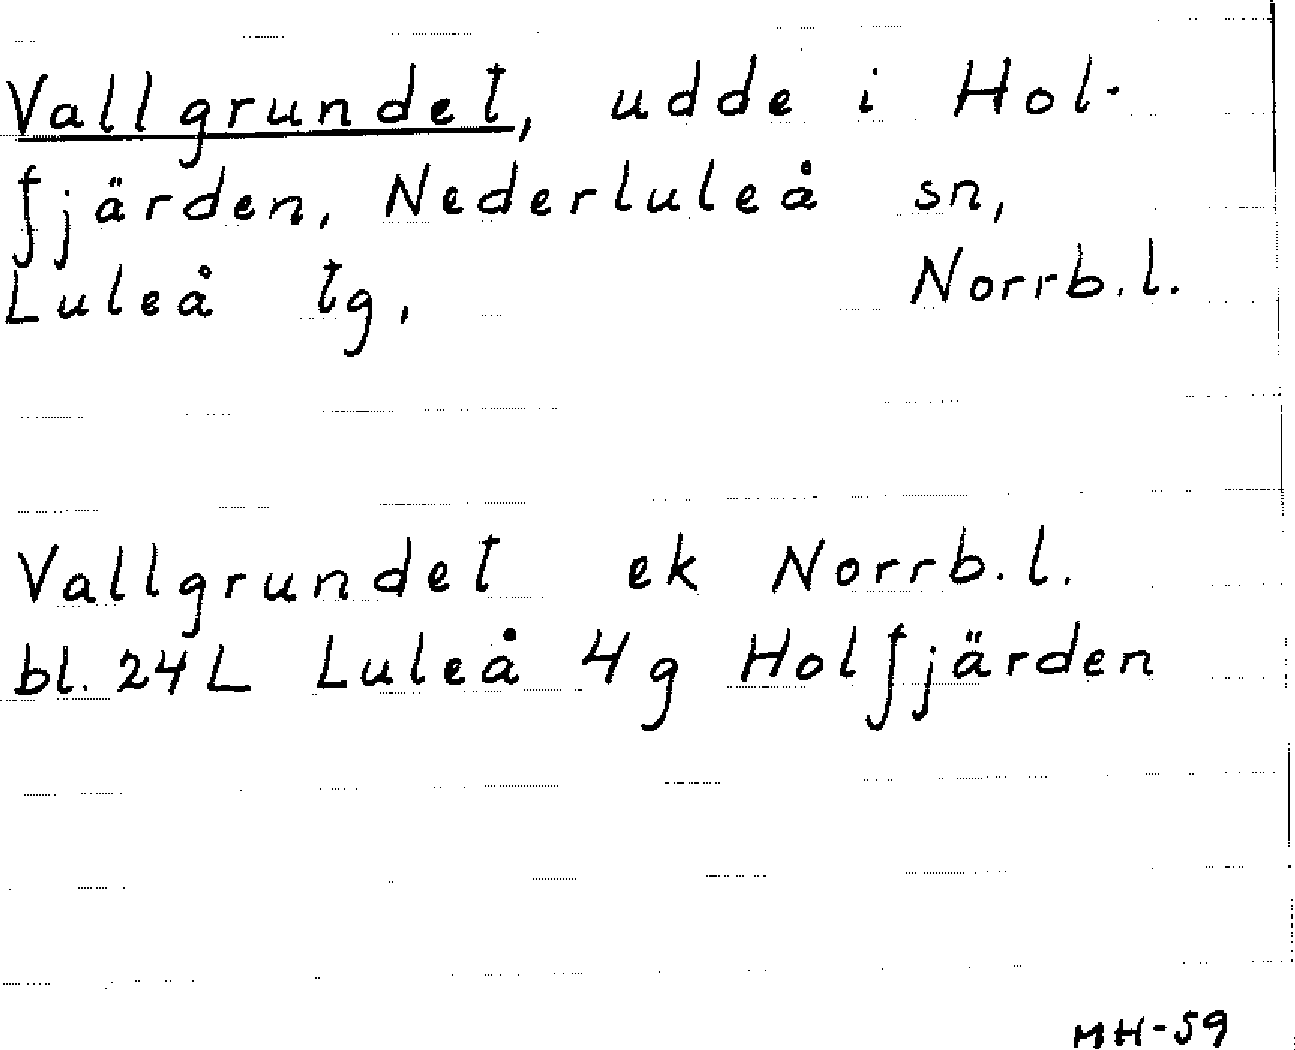 Vallgrundet, udde i Hol-
fjärden, Nederluleå sn,
Luleå tg, Norrb.l.
Vallgrundet ek Norrb.l.
bl. 24L Luleå 4g Holfjärden
MH-59